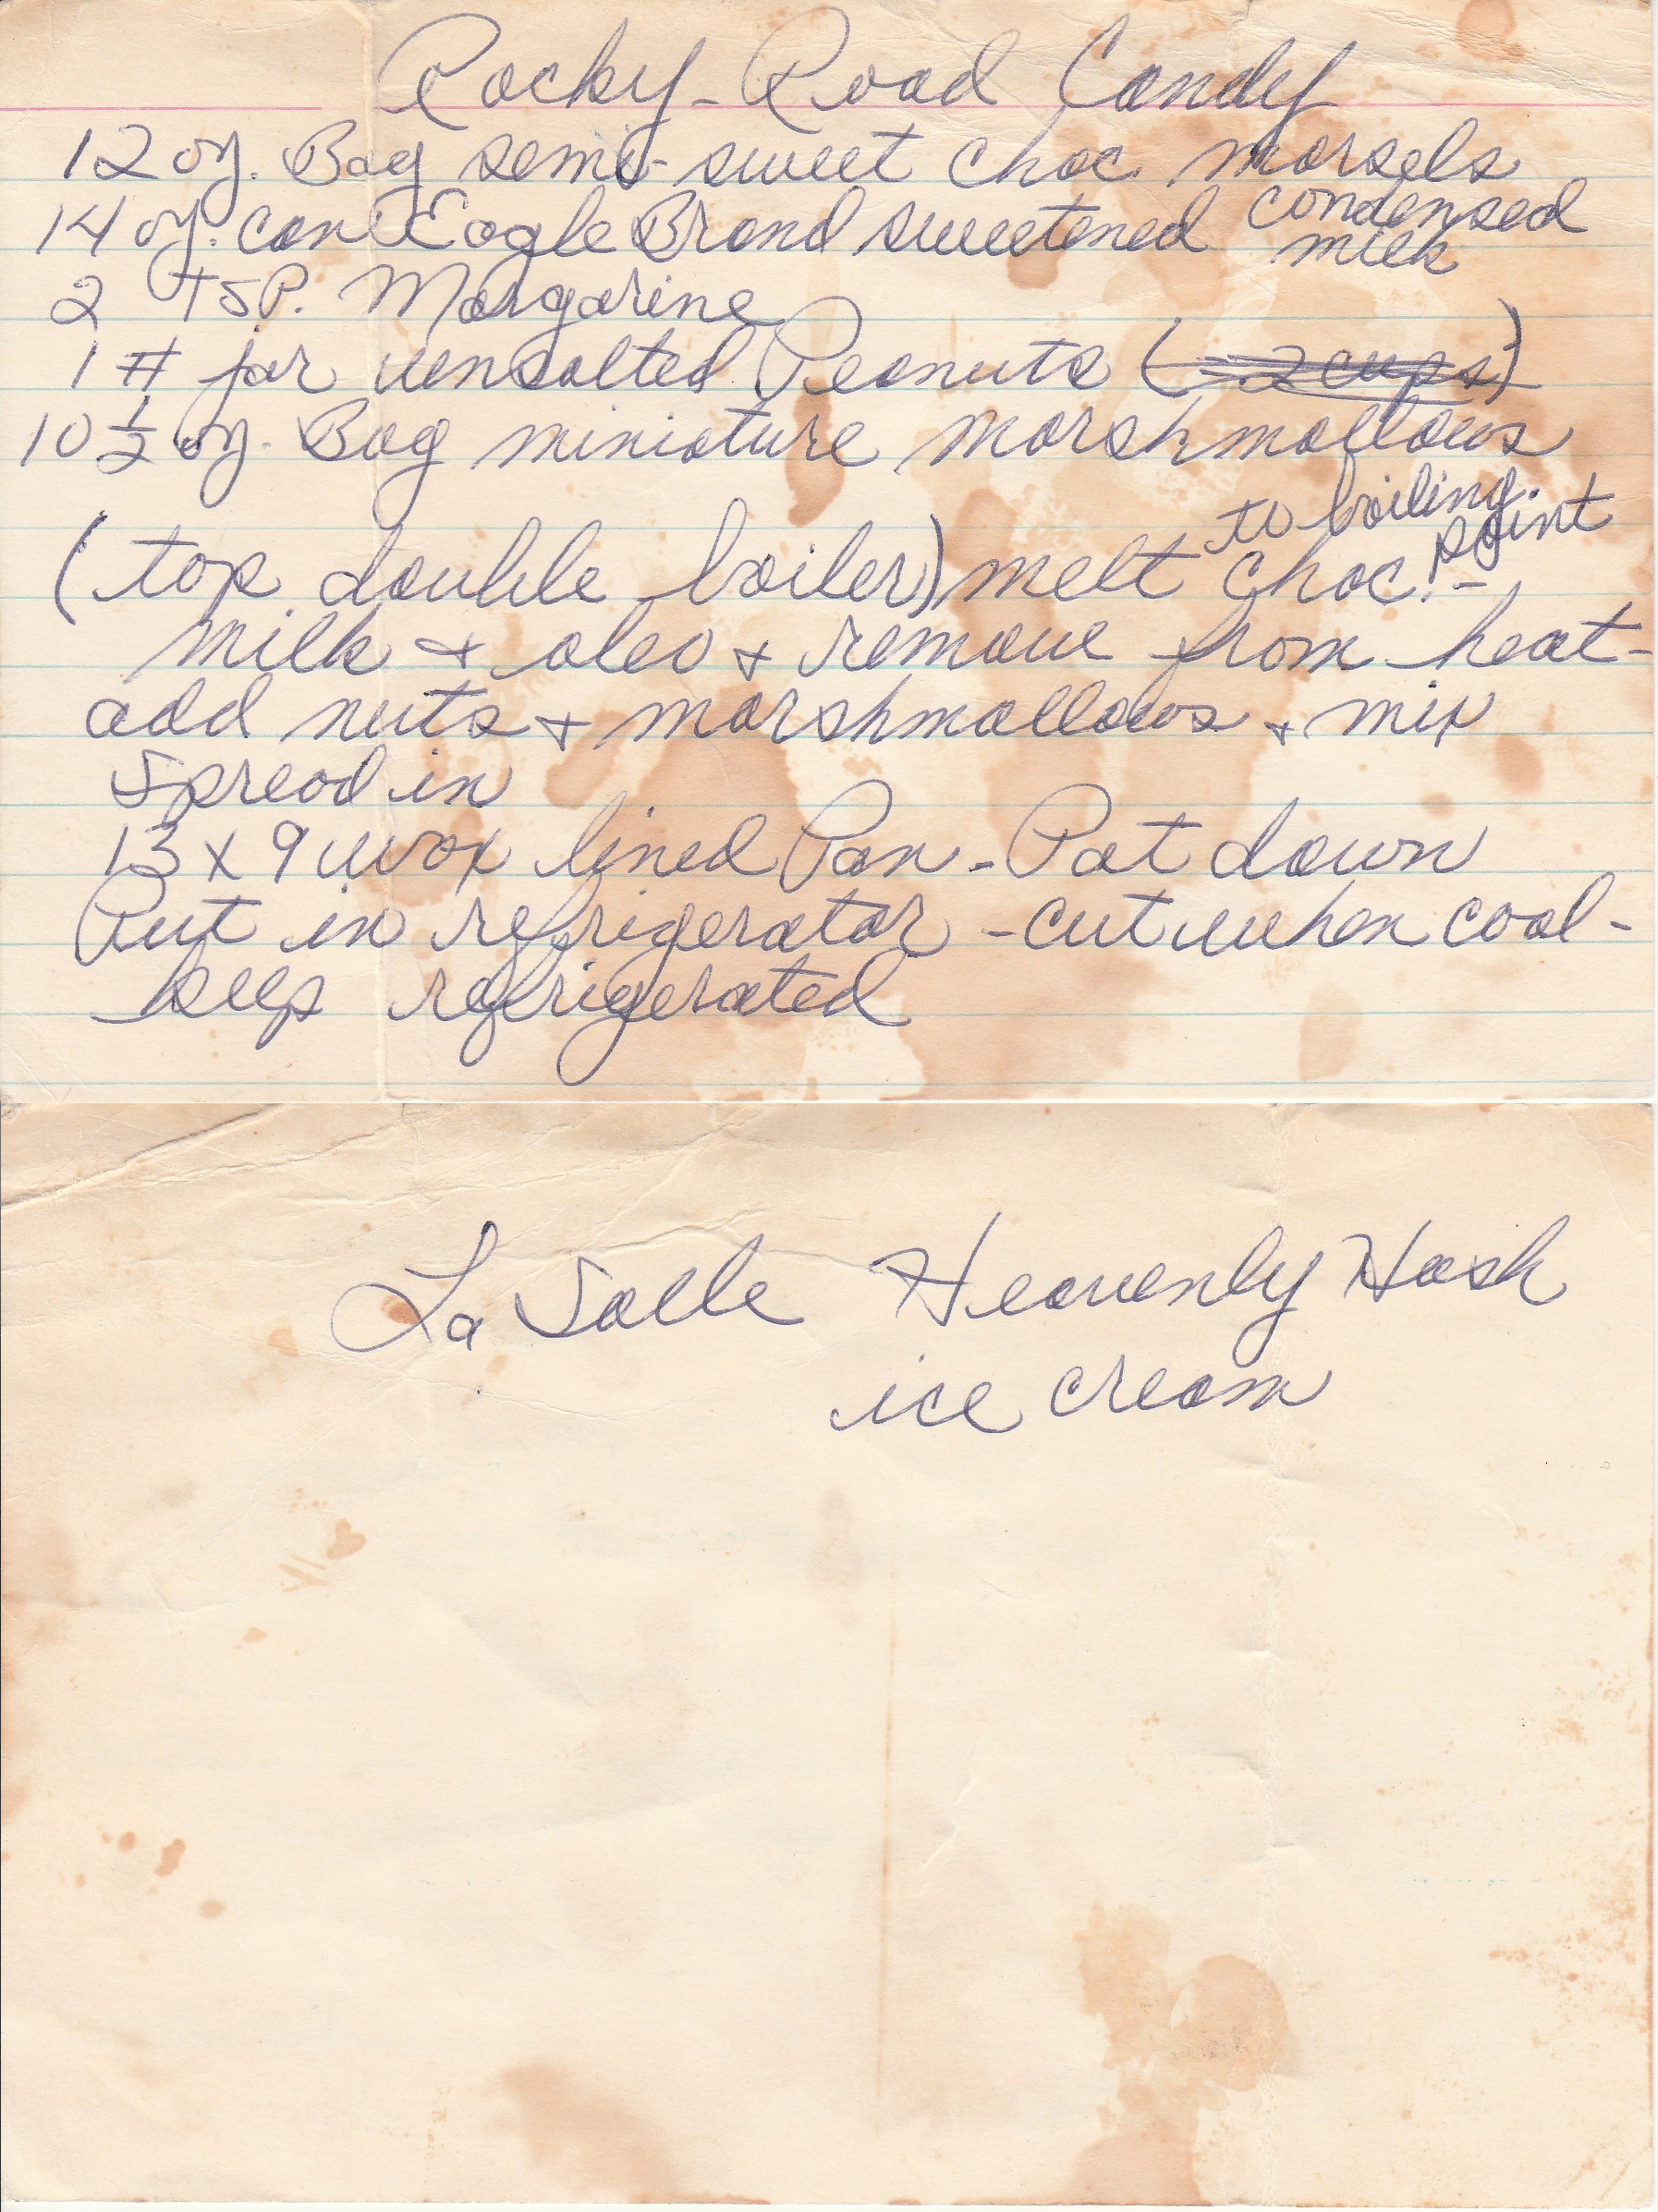 Rocky-Road Candy
12 oz. Bag semi-sweet choc. morsels
14 oz. can Eagle Brand sweetened condensed
milk
2 TSP. Margarine
1 # jar unsalted Peanuts (2 cups)
10 1/2 oz. Bag miniature marshmallows
to boiling
point
(top double boiler) melt choc. -
milk + oleo + remove from heat -
add nuts + marshmallows + mix
Spread in
13 x 9 wax lined Pan - Pat down
Put in refrigerator - cut when cool -
keep refrigerated
La Salle Heavenly Hash
ice cream